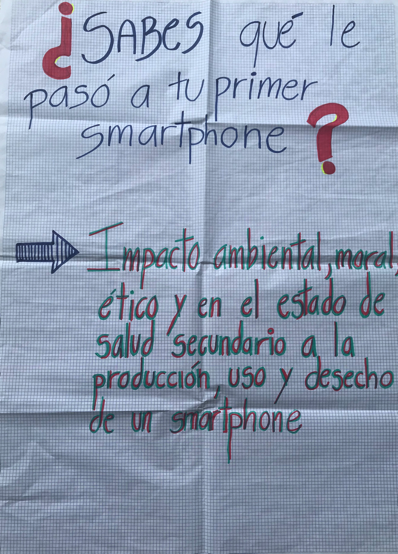 ¿SABES qué le
pasó a tu primer
smartphone?
Impacto ambiental, moral,
ético y en el estado de
salud secundario a la
producción, uso y desecho
de un smartphone